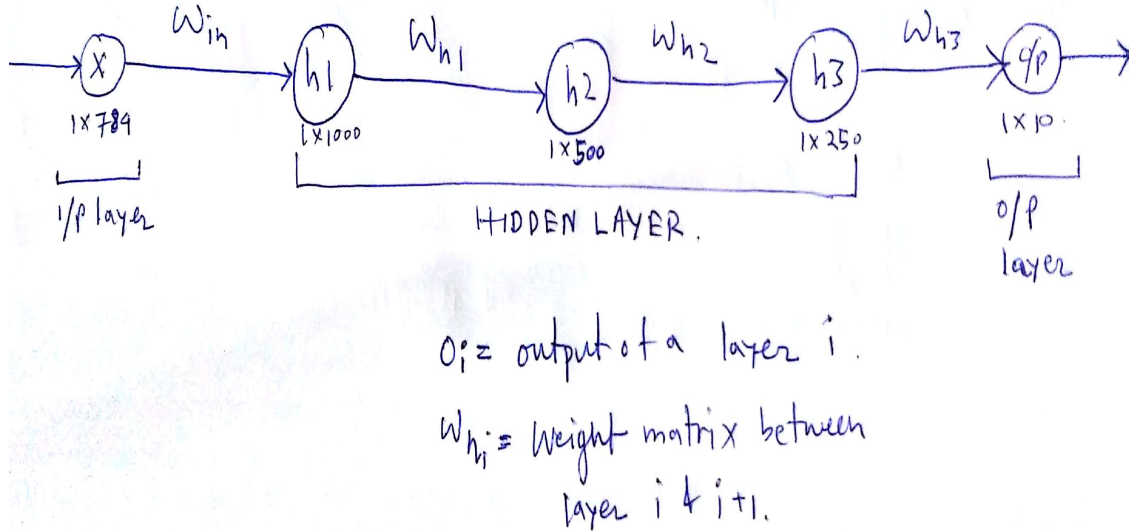 Win
Wh1
Wh2
Wh3
x
h1
h2
h3
o/p
1×784
1×1000
1×500
1×250
1×10.
i/p layer
HIDDEN LAYER.
o/p
layer
Oi = output of a layer i.
Whi = Weight matrix between
layer i & i+1.